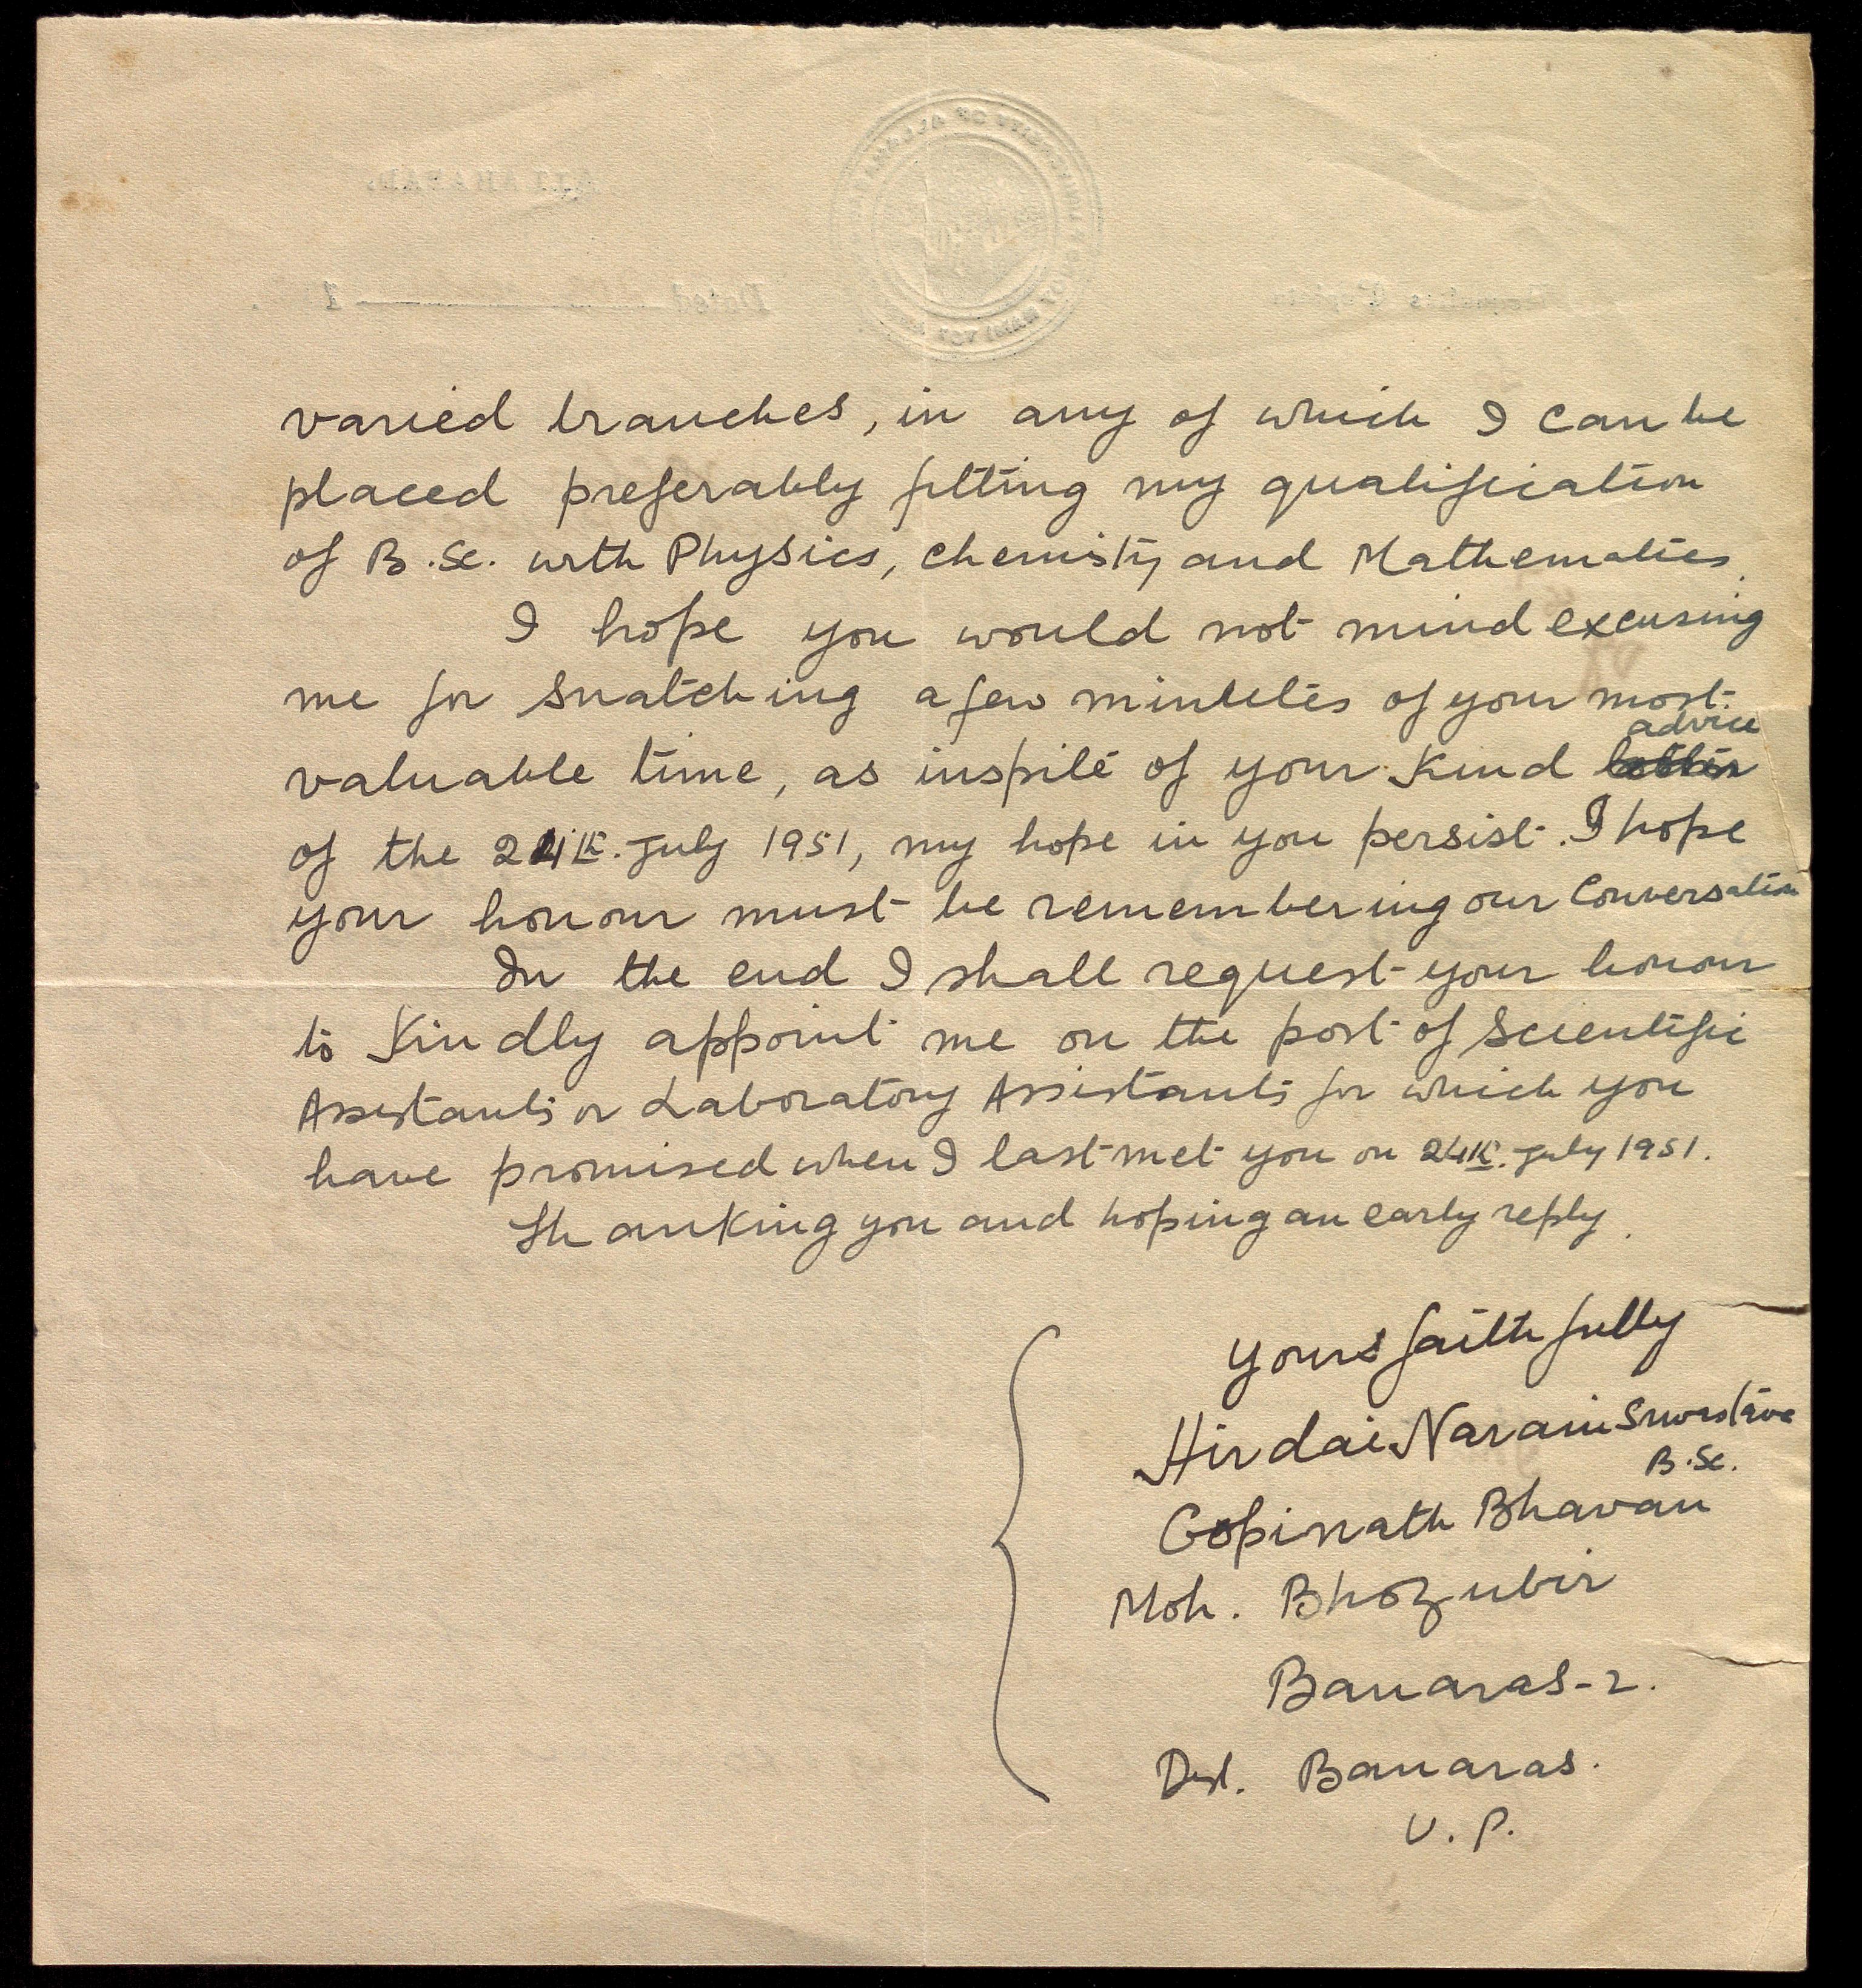 varied branches, in any of which I can be
placed preferably fitting my qualification
of B.Sc. with Physics, chemisty and Mathematics.
I hope you would not mind excusing
me for snatching a few mintutes of your most
valuable time, as inspite of your kind advice
of the 24th. July 1951, my hope in you persist. I hope
your honour must be remembering our Conversation
In the end I shall request your honour
to kindly appoint me on the post of Scientific
Assistants or Laboratory Assistants for which you
have promised when I last met you on 24th. July 1951.
Thanking you and hoping an early reply.
Yours faithfully
Hirdai Narain Srivastava
B.Sc.
Gopinath Bhavan
Moh. Bhozubir
Banaras-2.
Dist. Banaras.
U.P.